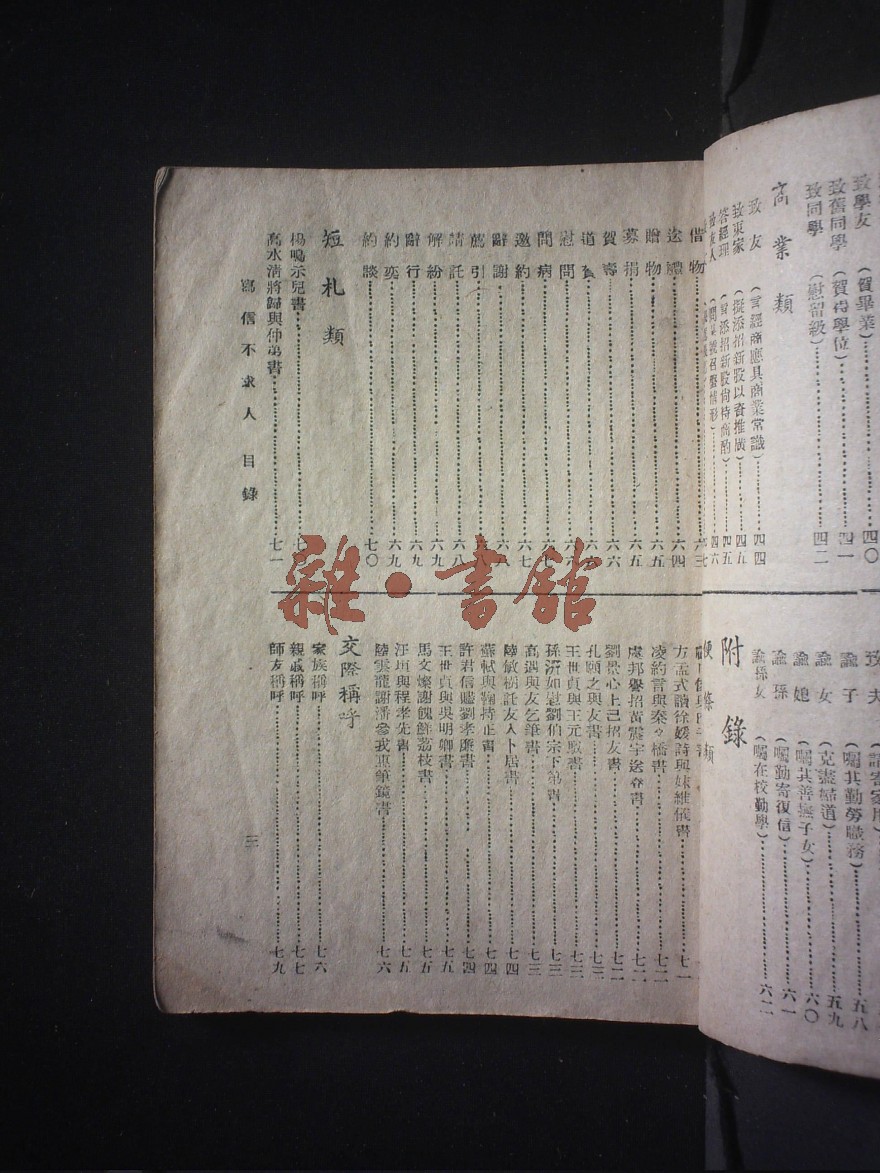 致學友（賀畢業）四〇
致舊同學（賀得學位）四一
致同學（慰留級）四二
商業類
致友（言經商應具商業常識）四四
致東家（擬添招新股以資推廣）四五
答經理（添招新股尚待商酌）四五
四六
附錄
便條類
借物
送禮六四
贈物六五
募捐六五
賀壽六六
道賀
慰問
問病六七
邀約六七
辭謝六八
薦引
請託六八
解紛六九
辭行六九
約奕六九
約談七〇
短札類
楊鳴示兒書
高水清將歸與仲弟書七一
方孟式讀徐媛詩與妹維儀書七一
凌約言與秦々橋書七二
盧邦譽招黃震宇送春書七二
劉景心上己招友書七二
孔顒之與友書七三
王世貞與王元馭書七三
孫淇如慰劉伯宗下第書七三
高遇與友乞筆書七三
陸敏樹託友人卜居書七四
蘇軾與鞠持正書七四
許君信贐劉孝廉書七四
王世貞與吳明卿書七五
馬文燦謝餽鮮荔枝書七五
汪垣與程孝先書七五
陸雲龍謝潘參我惠筆鏡書七六
交際稱呼
家族稱呼七六
親戚稱呼七七
師友稱呼七九
諭子（囑其勤勞職務）五八
諭女（克盡婦道）五九
諭媳（囑其善撫子女）六〇
諭孫（囑勤寄復信）六一
諭孫女（囑在校勤學）六二
寫信不求人 目錄
三
雜·書館